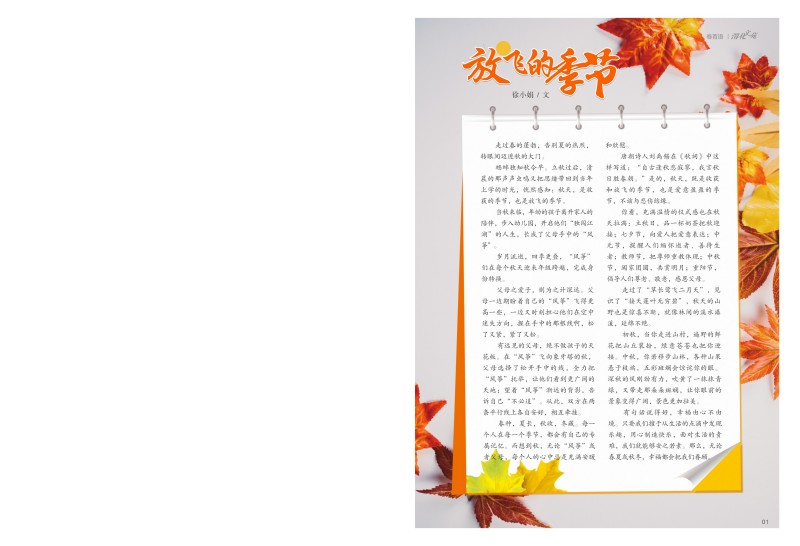 卷首语
放飞的季节
徐小娟 / 文
走过春的蓬勃,告别夏的热烈,
转眼间迈进秋的大门。
蟋蟀独知秋令早。立秋过后,清
晨的那声声虫鸣又把思绪带回到当年
上学的时光,恍然感知:秋天,是收
获的季节,也是放飞的季节。
当秋来临,年幼的孩子离开家人的
陪伴,步入幼儿园,开启他们“独闯江
湖”的人生,长成了父母手中的“风
筝”。
岁月流逝,四季更叠,“风筝”
们在每个秋天迎来年级跨越,完成身
份转换。
父母之爱子,则为之计深远。父
母一边期盼着自己的“风筝”飞得更
高一些,一边又时刻担心他们在空中
迷失方向,握在手中的那根线啊,松
了又紧,紧了又松。
有远见的父母,绝不做孩子的天
花板。在“风筝”飞向象牙塔的秋,
父母选择了松开手中的线,全力把
“风筝”托举,让他们看到更广阔的
天地;望着“风筝”渐远的背影,告
诉自己“不必追”。从此,双方在两
条平行线上各自安好,相互牵挂。
春种,夏长,秋收,冬藏。每一
个人在每一个季节,都会有自己的专
属记忆。而想到秋,无论“风筝”或
者父母,每个人的心中总是充满安暖
和欣慰。
唐朝诗人刘禹锡在《秋词》中这
样写道:“自古逢秋悲寂寥,我言秋
日胜春朝。”是的,秋天,既是收获
和放飞的季节,也是爱意盈盈的季
节,不该与悲伤纺缠。
你看,充满温情的仪式感也在秋
天拉满:立秋日,品一杯奶茶把秋迎
接;七夕节,向爱人把爱意表达;中
元节,提醒人们缅怀逝者、善待生
者;教师节,把尊师重教体现;中秋
节,阖家团圆,共赏明月;重阳节,
倡导人们尊老、敬老,感恩父母。
走过了“草长莺飞二月天”,见
识了“接天莲叶无穷碧”,秋天的山
野也是惊喜不断,就像林间的溪水潺
潺,延绵不绝。
初秋,当你走进山村,遍野的鲜
花把山庄装扮,绿意苍苍也把你迎
接。中秋,你若移步山林,各种山果
悬于枝端,五彩斑斓会惊诧你的眼。
深秋的风刚劲有力,吹黄了一抹抹青
绿,又带走那朵朵斑斓,让你眼前的
景象变得广阔,景色更加壮美。
有句话说得好,幸福由心不由
境。只要我们擅于从生活的点滴中发现
乐趣,用心制造快乐,面对生活的责
难,我们就能够安之若素。那么,无论
春夏或秋冬,幸福都会把我们眷顾。
01